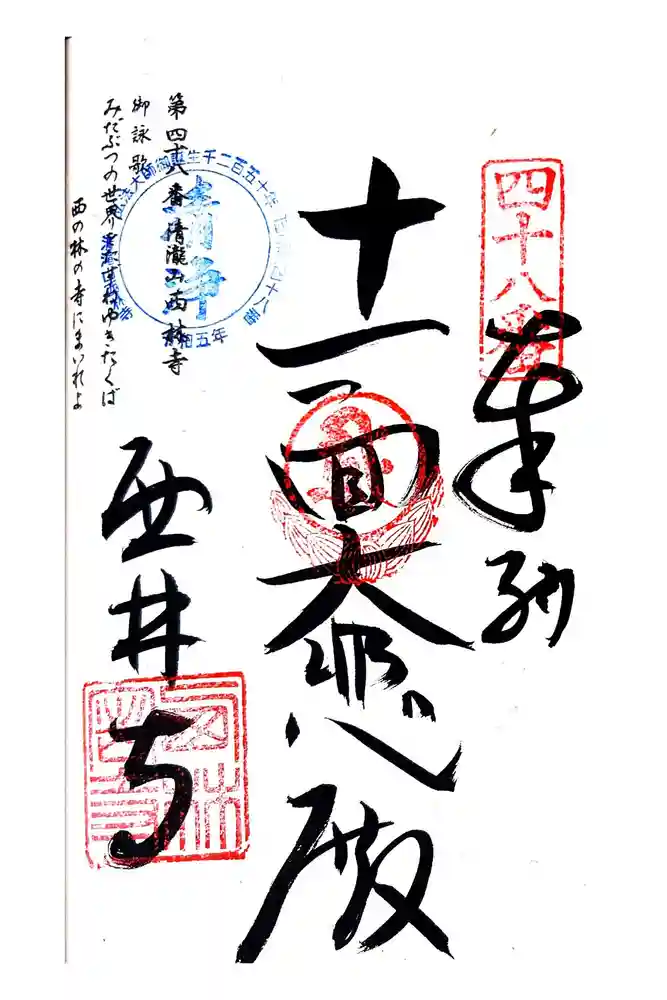 四十八番
奉納
十一面大悲殿
西林寺
弘法大師御誕生千二百五十年
令和五年
第四十八番 清瀧山西林寺
御詠歌
みだぶつの世界
ゆきたくば
西の林の寺にまいれよ